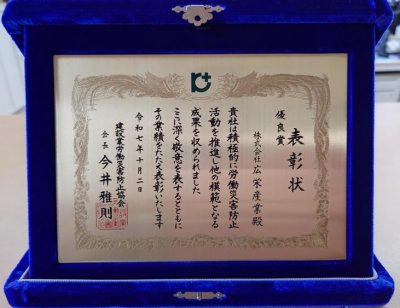 表彰状
優良賞
株式会社広栄産業殿
貴社は積極的に労働災害防止
活動を推進し他の模範となる
成果を収められました
ここに深く敬意を表するとともに
その業績をたたえ表彰いたします
令和七年十月二日
建設業労働災害防止協会
会長 今井雅則